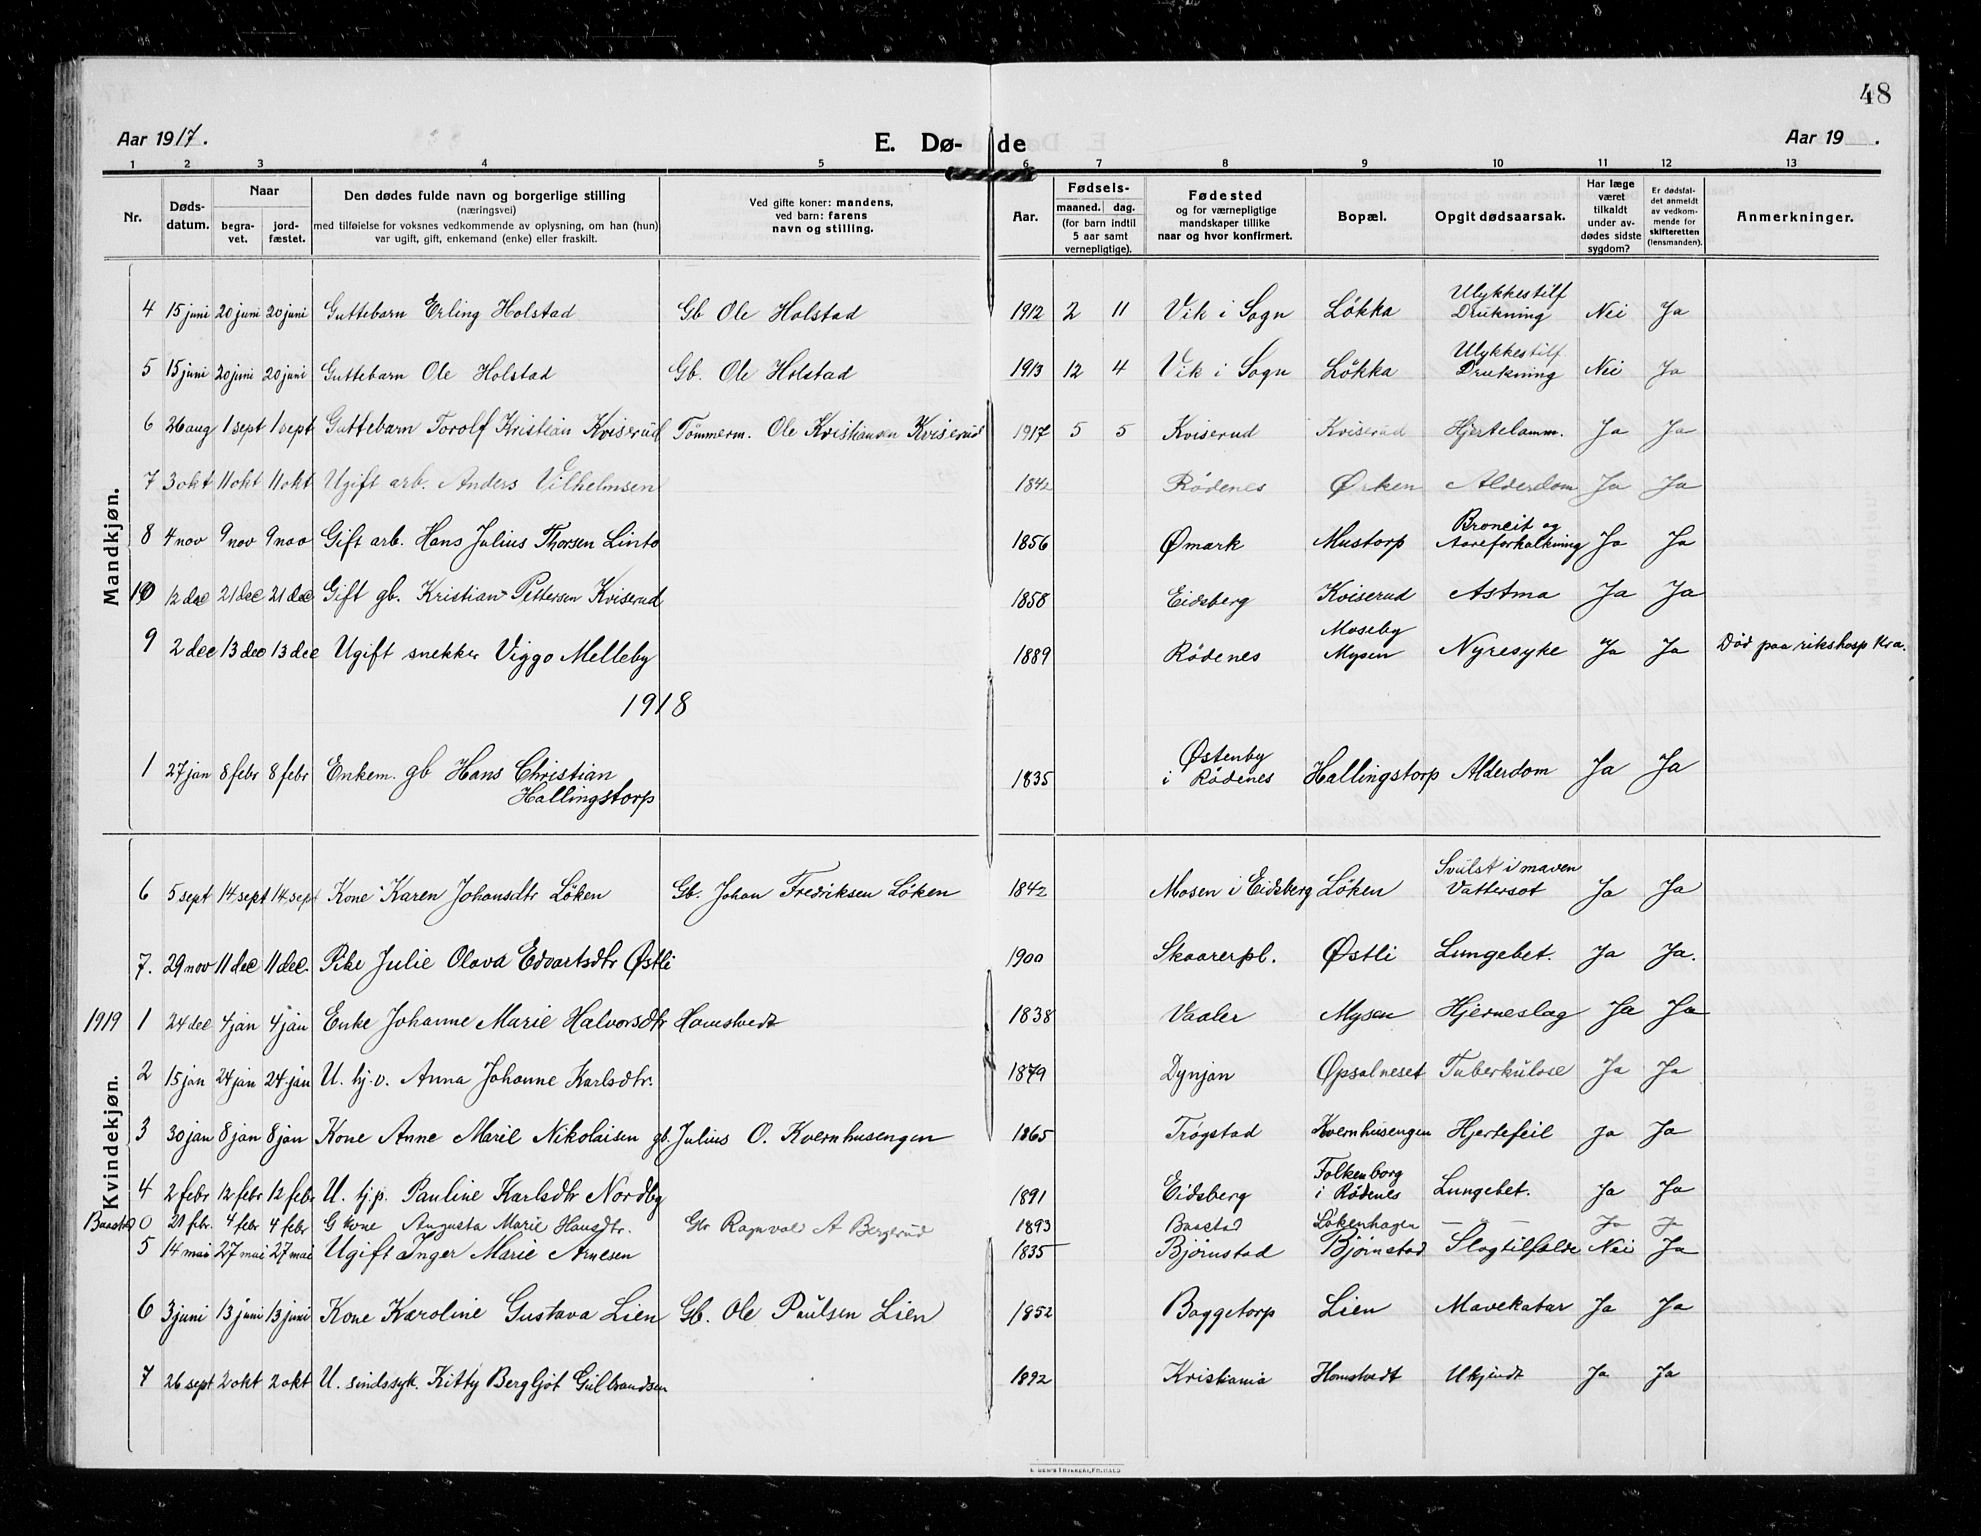 48
Aar 1917.
E. Dø- de
Aar 19 .
1 2 3 4 5 6 7 8 9 10 11 12 13
Nr.
Døds-
datum.
Naar
begra-
vet.
jord-
fæstet.
Den dødes fulde navn og borgerlige stilling
(næringsvei)
med tilføielse for voksnes vedkommende av oplysning, om han (hun)
var ugift, gift, enkemand (enke) eller fraskilt.
Ved gifte koner: mandens,
ved barn: farens
navn og stilling.
Aar.
Fødsels-
maaned. dag.
(for barn indtil
5 aar samt
vernepligtige).
Fødested
og for værnepligtige
mandskaper tillike
naar og hvor konfirmert.
Bopæl.
Opgit dødsaarsak.
Har læge
været
tilkaldt
under av-
dødes sidste
sygdom?
Er dødsfal-
det anmeldt
av vedkom-
mende for
skifteretten
(lensmanden).
Anmerkninger.
Mandkjøn.
4 15 juni 20 juni 20 juni Guttebarn Erling Holstad Gb Ole Holstad 1912 2 11 Vik i Sogn Løkka Ulykkestilf Drukning Nei Ja
5 15 juni 20 juni 20 juni Guttebarn Ole Holstad Gb. Ole Holstad 1913 12 4 Vik i Sogn Løkka Ulykkestilf. Drukning Nei Ja
6 26 aug 1 sept 1 sept Guttebarn Torolf Kristian Kviserud Tömmerm. Ole Kristiansen Kviserud 1917 5 5 Kviserud Kviserud Hjertelamm. Ja Ja
7 3 okt 11 okt 11 okt Ugift arb. Anders Vilhelmsen 1842 Rödenes Ørken Alderdom Ja Ja
8 4 nov 9 nov 9 nov Gift arb. Hans Julius Thorsen Linto 1856 Ømark Mustorp Broncit og Aareforkalkning Ja Ja
10 12 dec 21 dec 21 dec Gift gb. Kristian Pettersen Kviserud 1858 Eidsberg Kviserud Astma Ja Ja
9 2 dec 13 dec 13 dec Ugift snekker Viggo Melleby 1889 Rödenes Moseby Mysen Nyresyke Ja Ja Död paa rikshosp Kra.
1918
1 27 jan 8 febr 8 febr Enkem. gb Hans Christian Hallingstorp 1835 Østenby i Rödenes Hallingstorp Alderdom Ja Ja
Kvindekjøn.
6 5 sept 14 sept 14 sept Kone Karen Johansdtr Löken Gb. Johan Fredriksen Löken 1842 Mosen i Eidsberg Löken Svulst i maven Vattersot Ja Ja
7. 29 nov 11 dec 11 dec. Pike Julie Olava Edvartsdtr Østli 1900 Skaarerpl. Østli Lungebet. Ja Ja.
1919 1 24 dec 4 jan 4 jan Enke Johanne Marie Halvorsdtr Homstvedt 1838 Vaaler Mysen Hjerneslag Ja Ja
2 15 jan 24 jan 24 jan U. hj.v. Anna Johanne Karlsdtr. 1879 Dynjan Opsalneset Tuberkulose Ja Ja
3 30 jan 8 jan 8 jan Kone Anne Marie Nikolaisen gb. Julius O. Kvernhusengen 1865 Trögstad Kvernhusengen Hjertefeil Ja Ja
4 2 febr 12 febr 12 febr U. hj.p. Pauline Karlsdtr Nordby 1891 Eidsberg Folkenborg i Rödenes Lungebet. Ja Ja
Baastad 0 21 fbr. 4 febr 4 febr G kone Augusta Marie Hansdtr. Gbr Ragnvald A Bergerud 1893 Baastad Lökenhagen — — Ja Ja
5 14 mai 27 mai 27 mai Ugift Inger Marie Arnesen 1835 Bjørnstad Bjørnstad Slagtilfælde Nei Ja
6 3 juni 13 juni 13 juni Kone Karoline Gustava Lien Gb. Ole Paulsen Lien 1852 Baggetorp Lien Mavekatar Ja Ja
7 26 sept 2 okt 2 okt U. sindssyk. Kitty Bergljot Gulbrandsen 1892 Kristiania Homstvedt Ukjendt Ja Ja